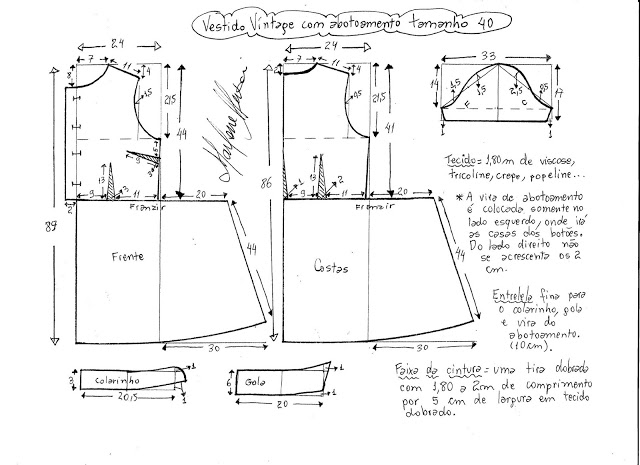 Vestido Vintage com abotoamento tamanho 40
24
7
11
4
8
3,5
21,5
44
89
13
9
3
11
20
2
Franzir
Frente
44
30
24
7
11
4
2
3,5
21,5
41
86
13
1
2
9
11
20
Franzir
Costas
44
30
33
14
1,5
2,5
0,5
17
F
C
1
1
Tecido = 1,80 m de viscose,
tricoline, crepe, popeline...
* A vira de abotoamento
é colocada somente no
lado esquerdo, onde irá
as casas dos botões.
Do lado direito não
se acrescenta os 2
cm.
Entretela fina para
o colarinho, gola
e vira do
abotoamento.
(10cm).
3
Colarinho
1
1
20,5
6
Gola
1
1
20
Faixa da cintura = uma tira dobrada
com 1,80 a 2cm de comprimento
por 5 cm de largura em tecido
dobrado.